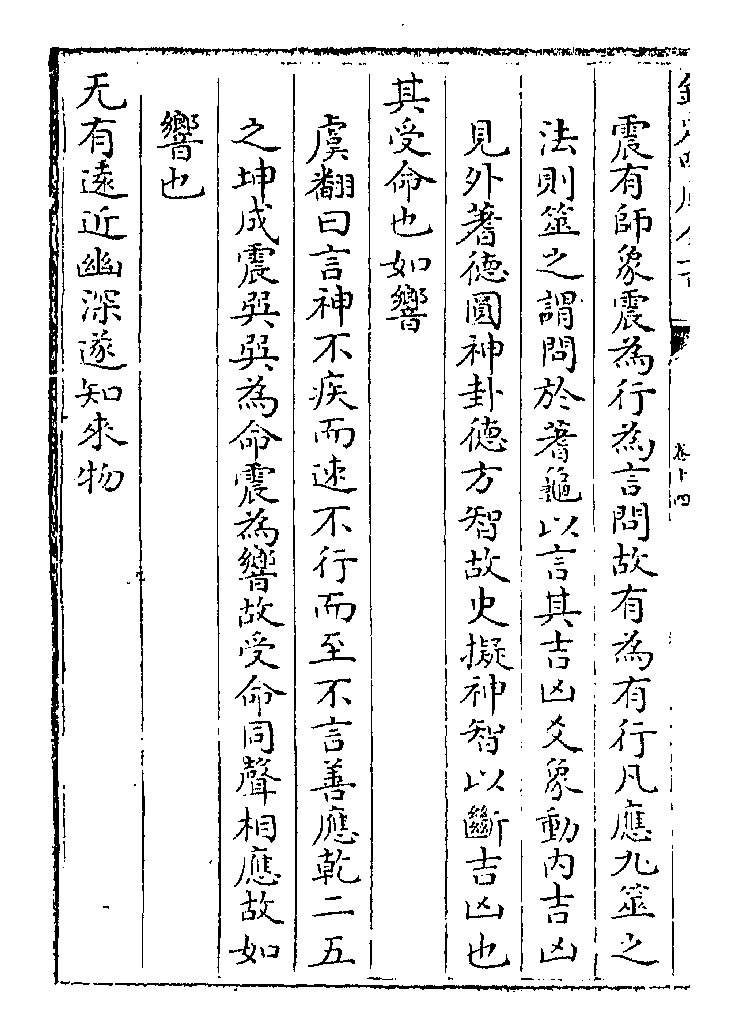 卷十四
震有師象震為行為言問故有為有行凡應九筮之
法則筮之謂問於蓍龜以言其吉凶爻象動内吉凶
見外蓍德圓神卦德方智故史擬神智以斷吉凶也
其受命也如響
虞翻曰言神不疾而速不行而至不言善應乾二五
之坤成震巽巽為命震為響故受命同聲相應故如
響也
无有遠近幽深遂知來物